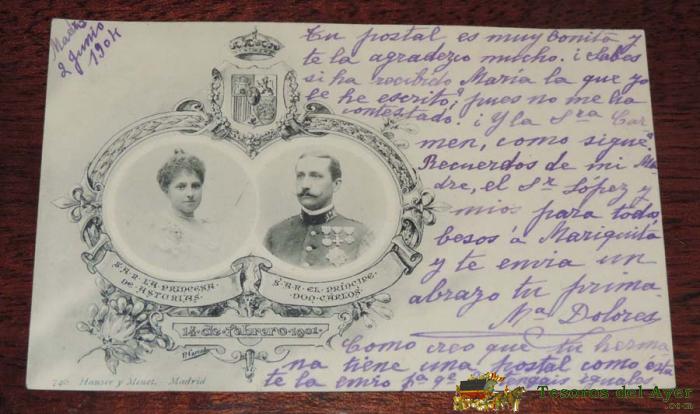 Madrid
2 Junio
1904
Tu postal es muy bonita y
te la agradezco mucho. ¿Sabes
si ha recibido María la que yo
le he escrito?, pues no me ha
contestado. ¿Y la Sra Car-
men, como sigue?
Recuerdos de mi Ma-
dre, el Sr López y
mios para todos
besos á Mariquita
y te envia un
abrazo tu prima
Ma Dolores
Como creo que tu herma-
na tiene una postal como ésta
te la envio pa qe
S.A.R. LA PRINCESA
DE ASTURIAS
S.A.R. EL PRÍNCIPE
DON CARLOS
14 de Febrero 1901
740 Hauser y Menet. Madrid
Tesoros del Ayer
.com